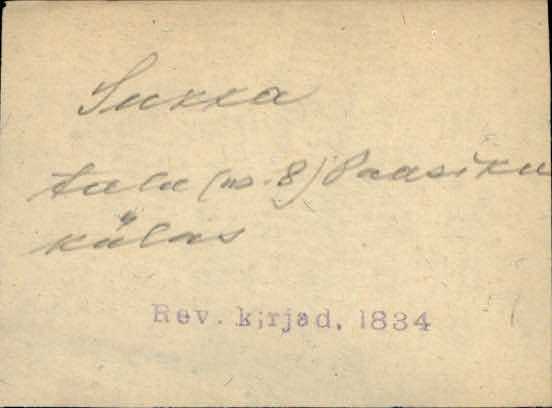 Sukka
talu (nr. 8) Paasiku
külas
Rev. kirjad, 1834